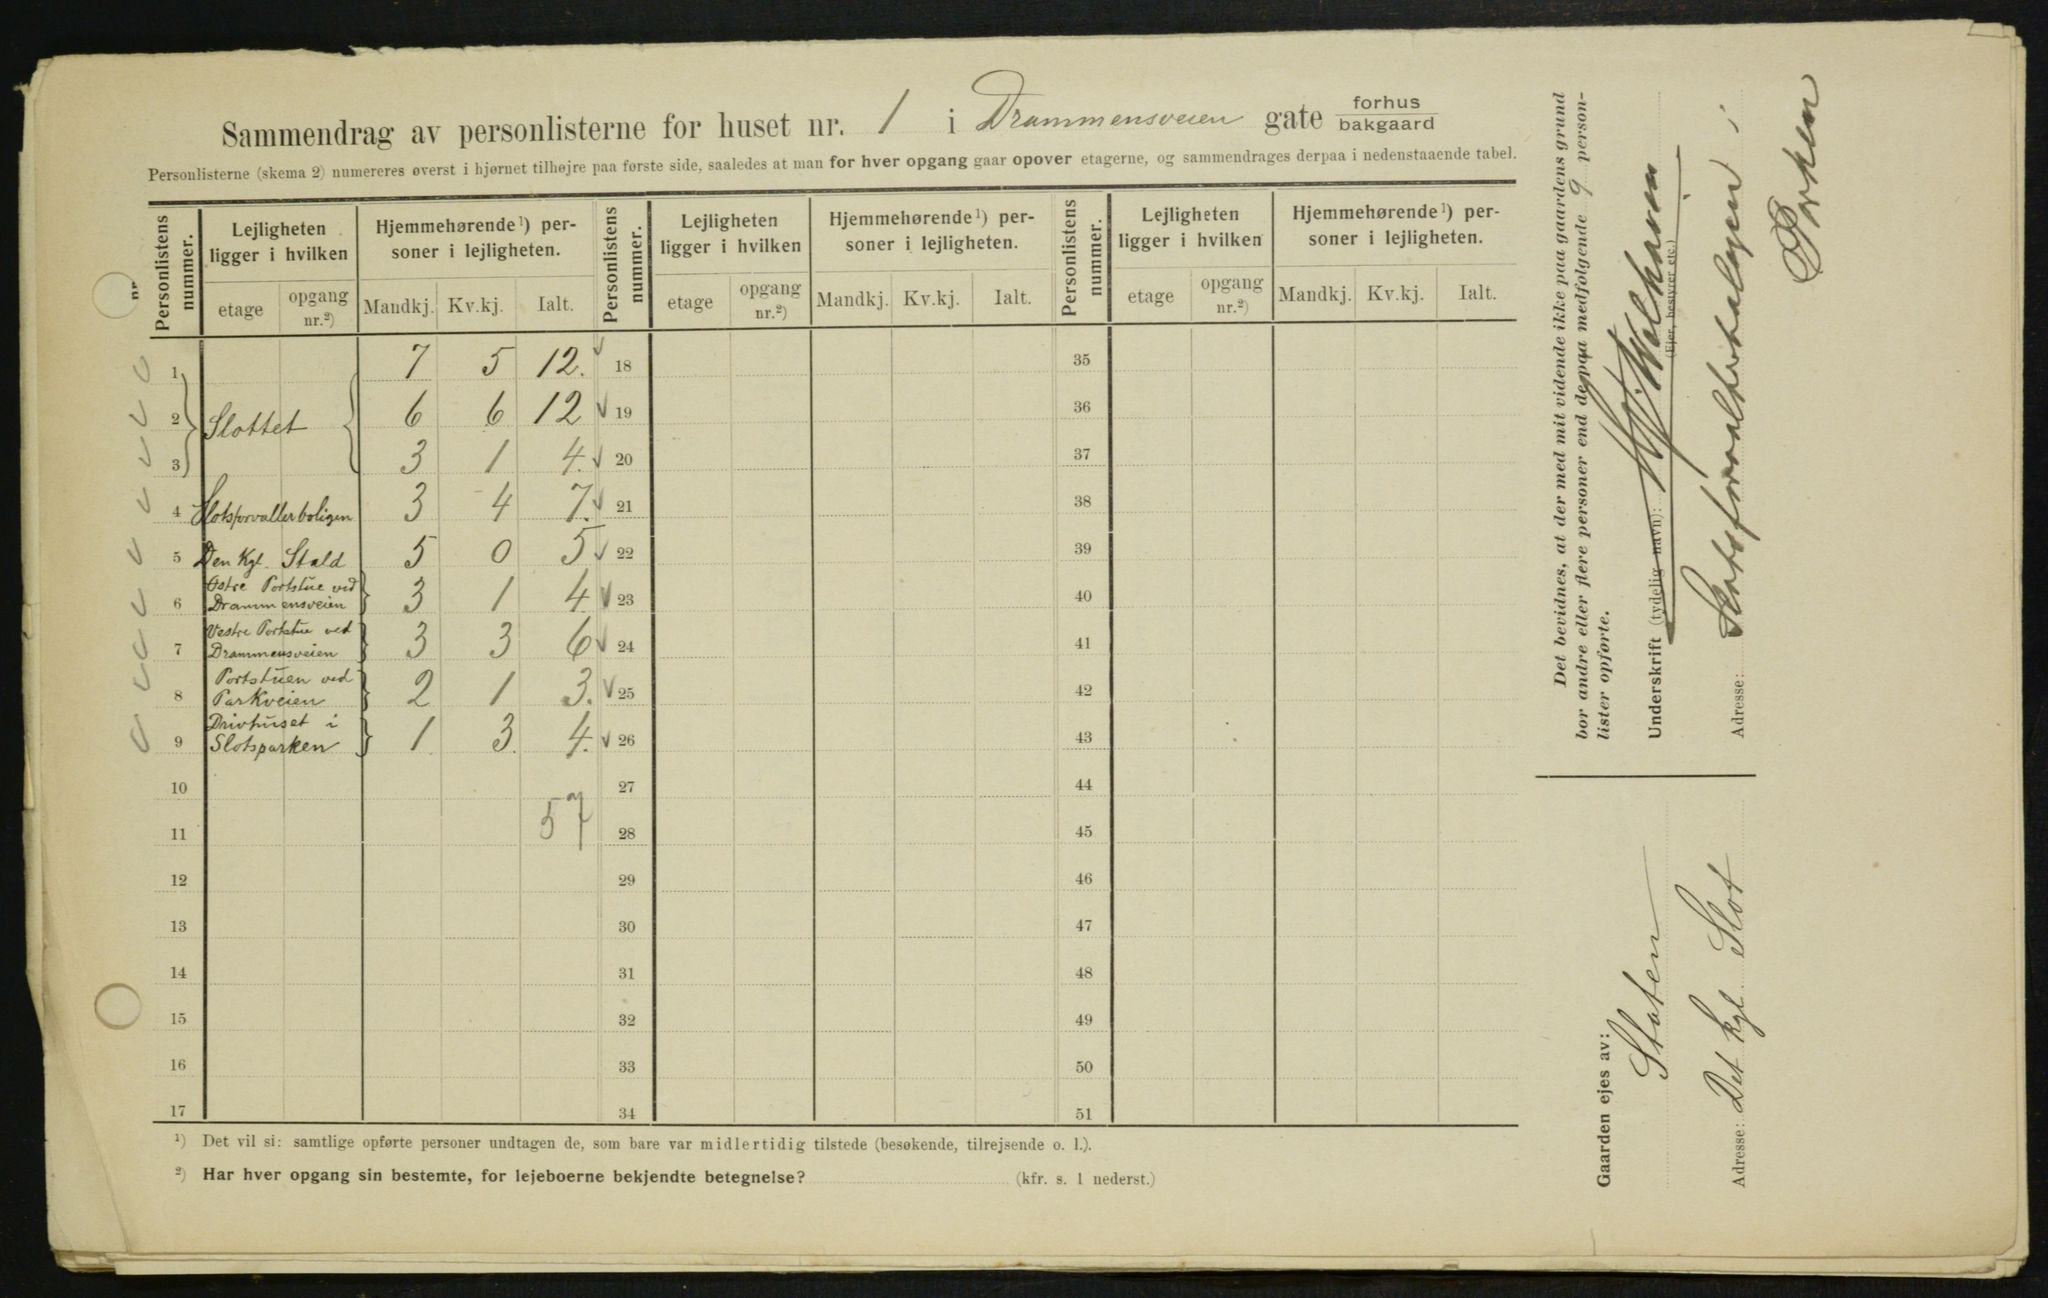 Sammendrag av personlisterne for huset nr. 1 i Drammensveien gate forhus bakgaard
Personlisterne (skema 2) numereres øverst i hjørnet tilhøjre paa første side, saaledes at man for hver opgang gaar opover etagerne, og sammendrages derpaa i nedenstaaende tabel.
Personlistens nummer. Lejligheten ligger i hvilken Hjemmehørende¹) personer i lejligheten. Personlistens nummer. Lejligheten ligger i hvilken Hjemmehørende¹) personer i lejligheten. Personlistens nummer. Lejligheten ligger i hvilken Hjemmehørende¹) personer i lejligheten.
etage opgang nr.²) Mandkj. Kv.kj. Ialt. etage opgang nr.²) Mandkj. Kv.kj. Ialt. etage opgang nr.²) Mandkj. Kv.kj. Ialt.
1 7 5 12. 18 35
2 Slottet 6 6 12 19 36
3 3 1 4. 20 37
4 Slotsforvallerboligen 3 4 7. 21 38
5 Den Kgl. Stald 5 0 5 22 39
6 Østre Portstue ved Drammensveien 3 1 4 23 40
7 Vestre Portstue ved Drammensveien 3 3 6 24 41
8 Portstuen ved Parkveien 2 1 3. 25 42
9 Drivhuset i Slotsparken 1 3 4. 26 43
10 27 44
11 57 28 45
12 29 46
13 30 47
14 31 48
15 32 49
16 33 50
17 34 51
¹) Det vil si: samtlige opførte personer undtagen de, som bare var midlertidig tilstede (besøkende, tilrejsende o. l.).
²) Har hver opgang sin bestemte, for lejeboerne bekjendte betegnelse? (kfr. s. 1 nederst.)
Det bevidnes, at der med mit vidende ikke paa gaardens grund
bor andre eller flere personer end de paa medfølgende 9 person-
lister opførte.
Underskrift (tydelig navn):
(Ejer, bestyrer etc.)
Adresse: Slotsforvalterboligen i
Parken
Gaarden ejes av:
Staten
Adresse: Det kgl Slot